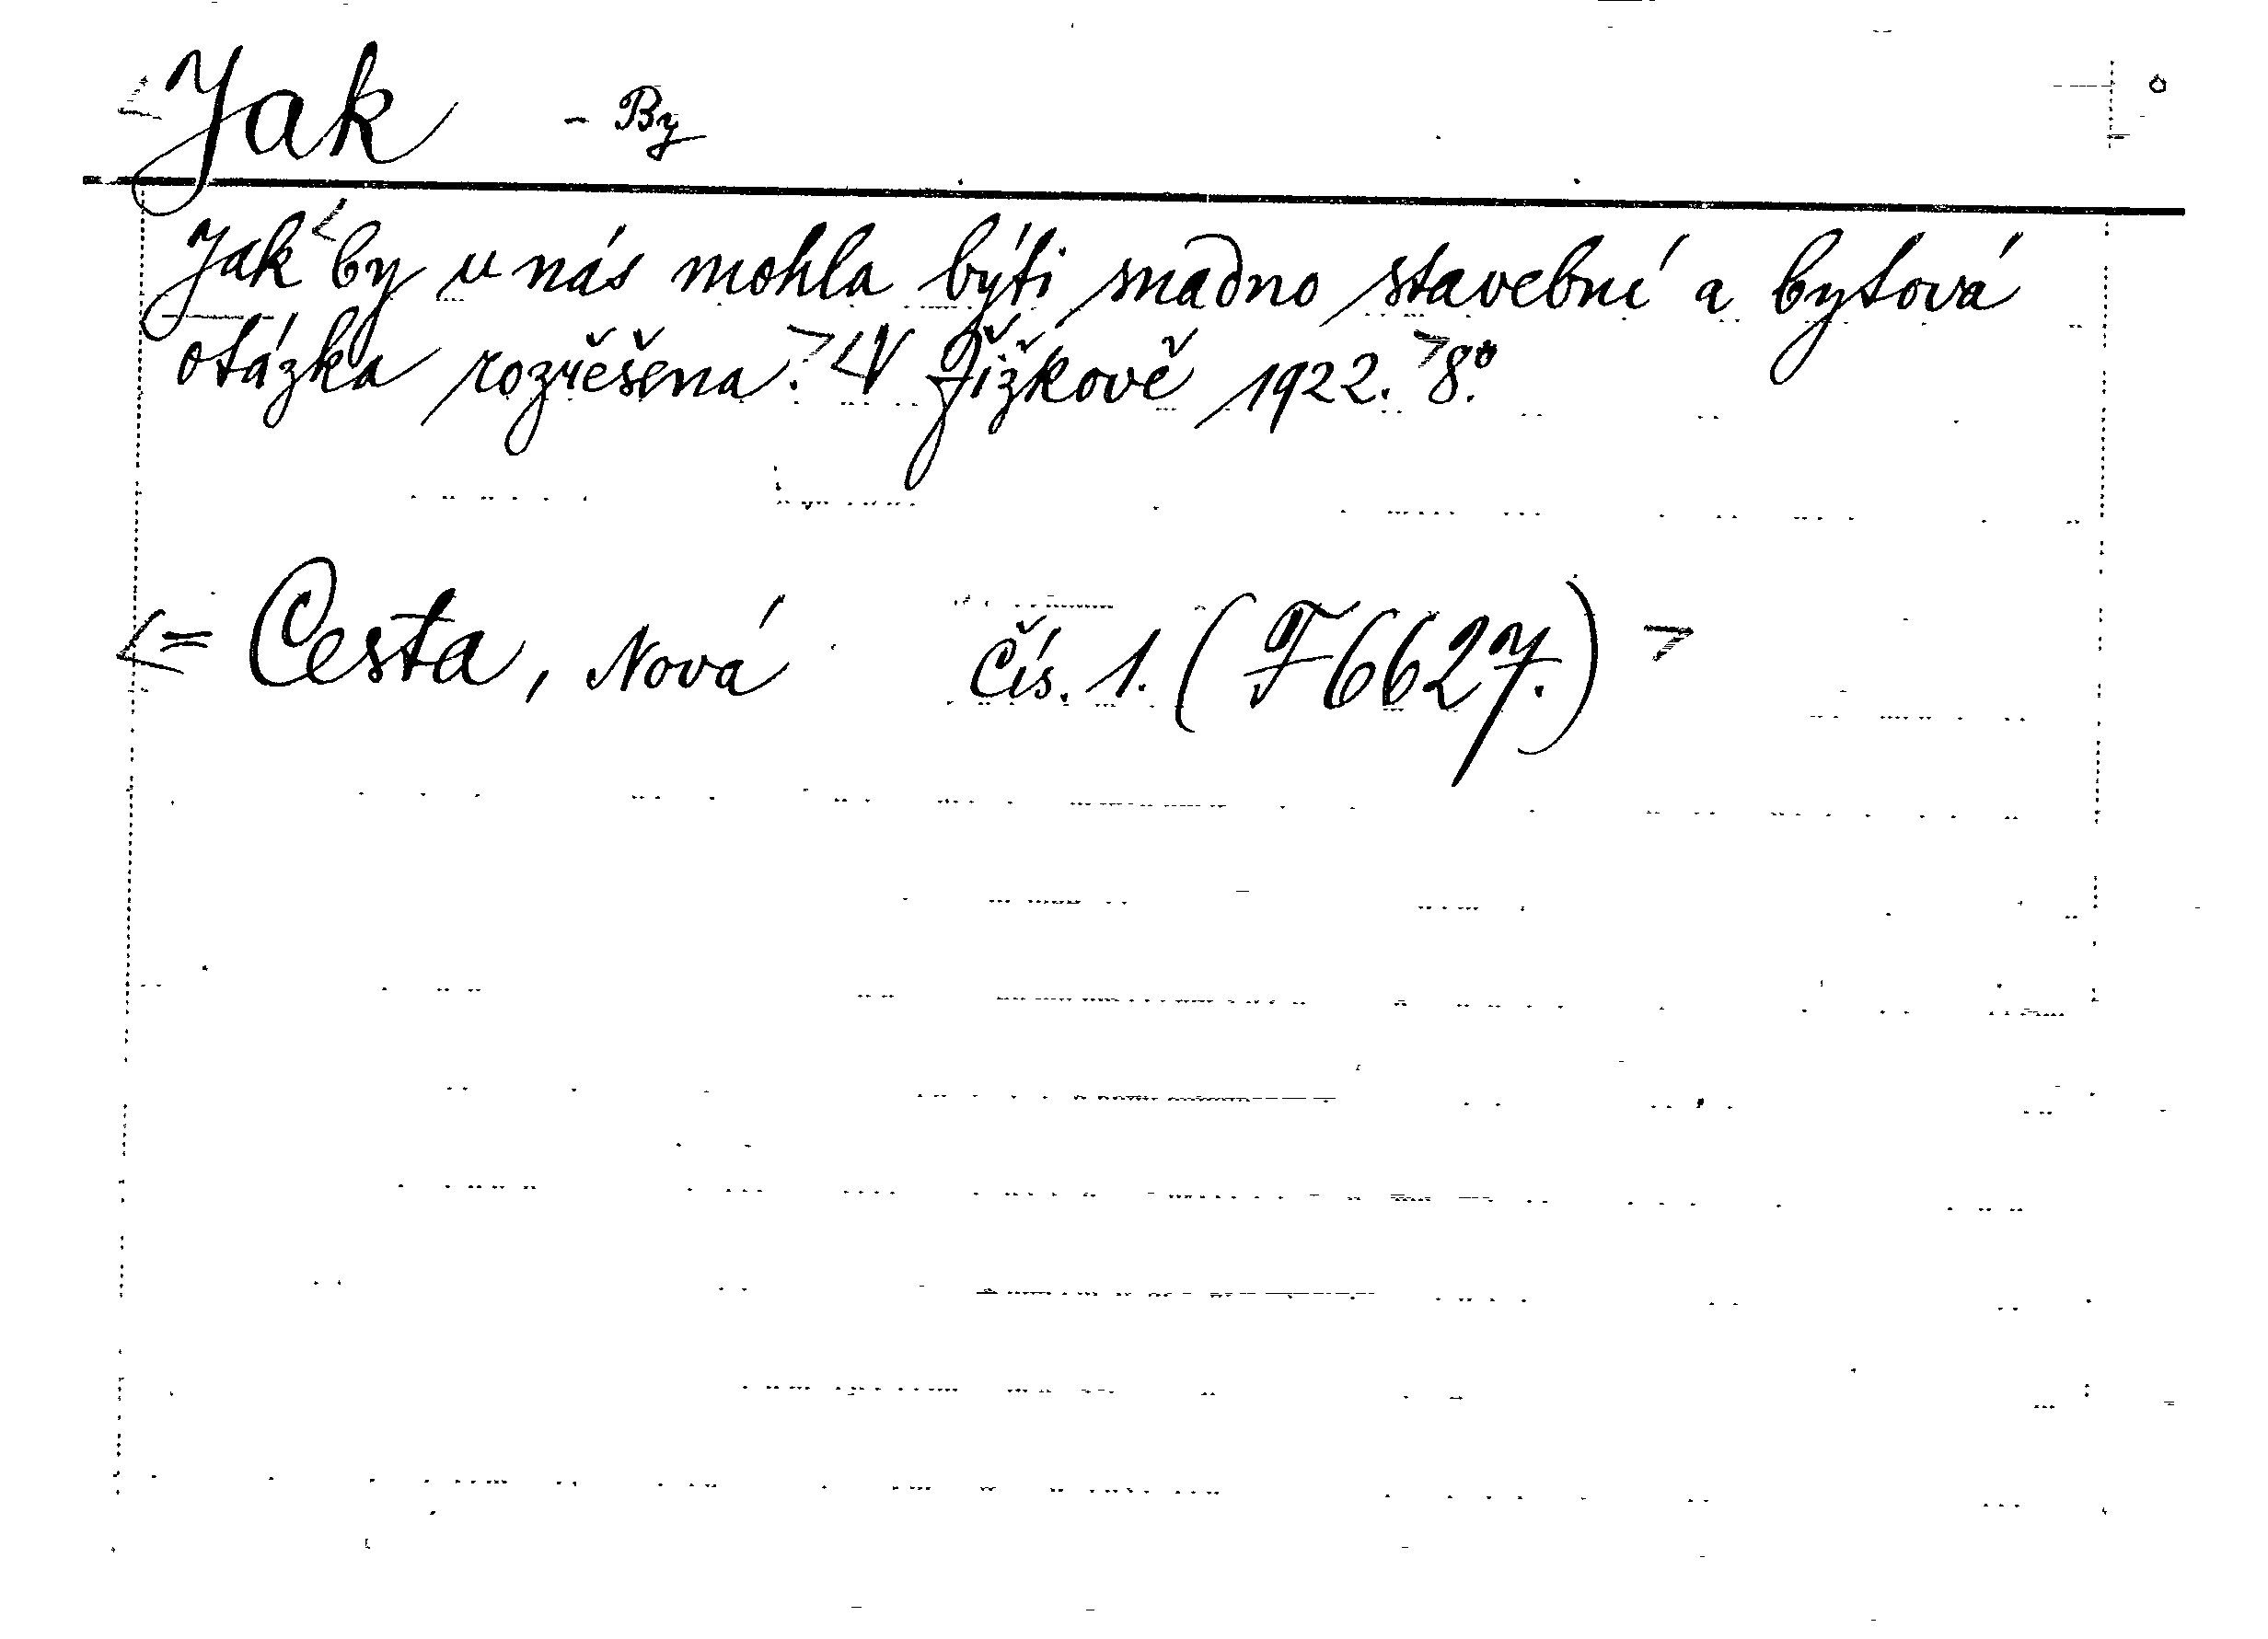 <Jak - By
Jak <by u nás mohla býti snadno stavební a bytová
otázka rozřešena.> <V Žižkově 1922.> 8°.
<= Cesta, Nová čís. 1. (F6627.)>